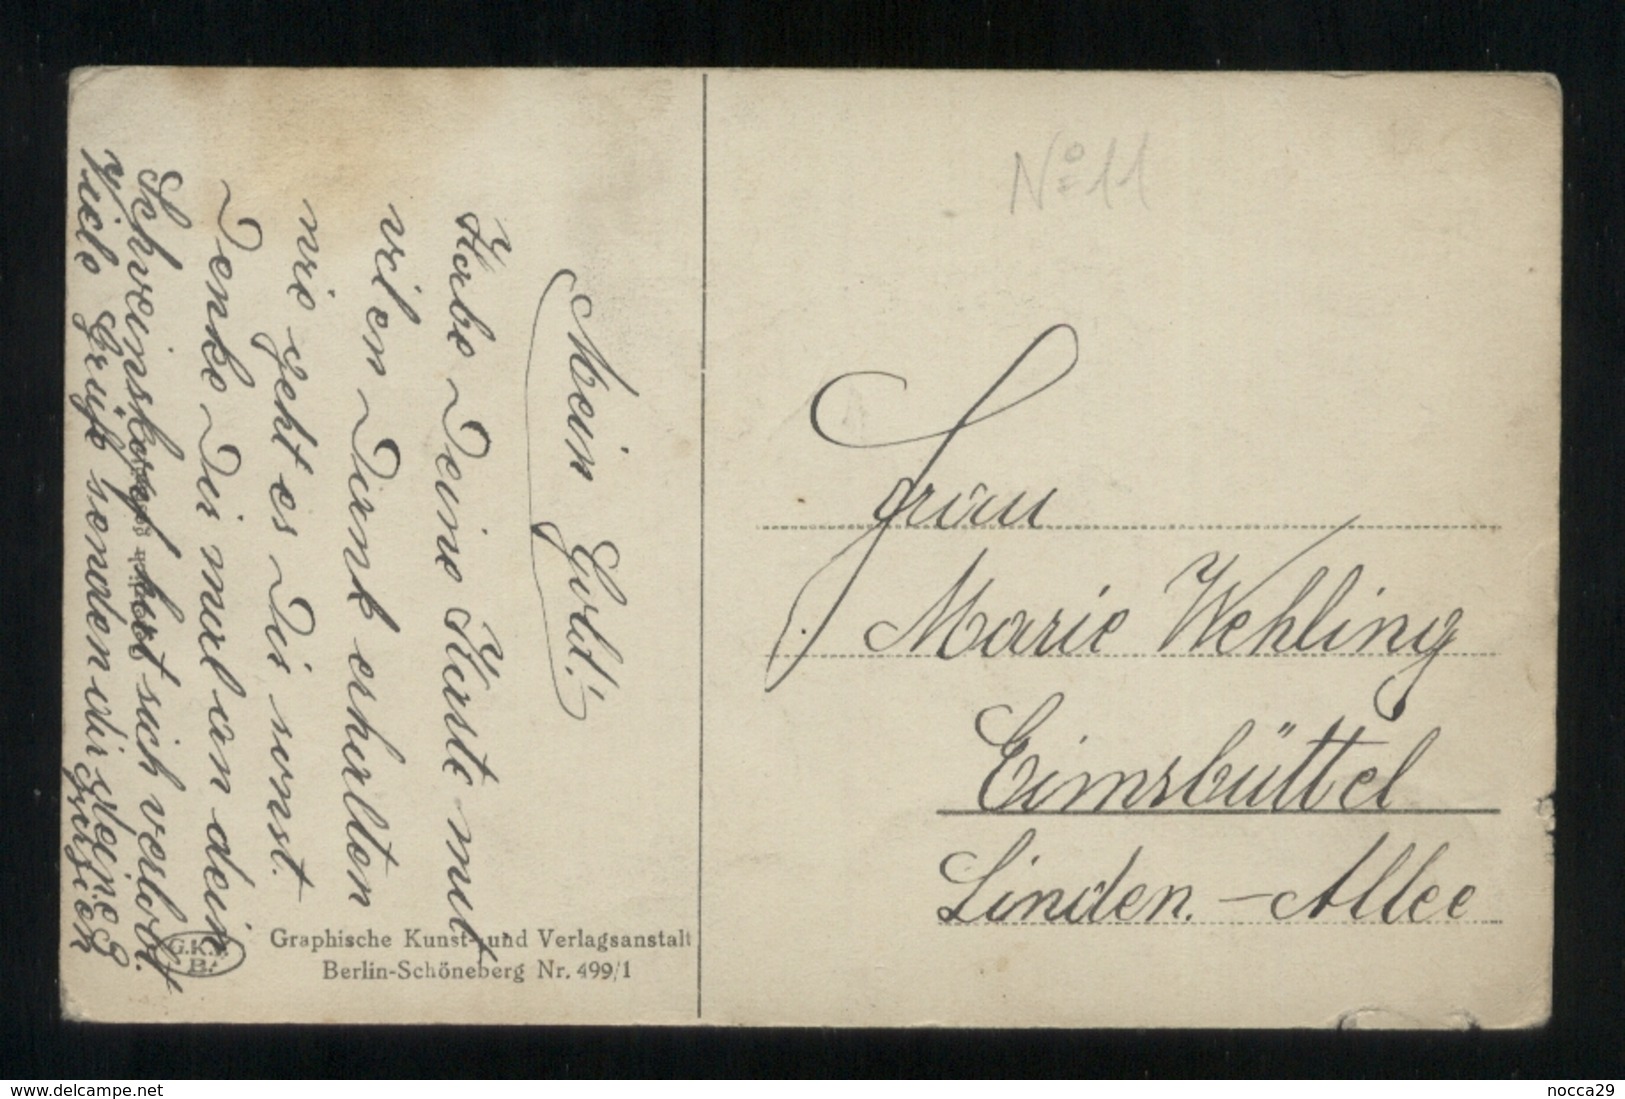 Mein Gold!
Habe Deine Karte mit
vilen Dank erhalten
wie geht es Dir sonst.
Denke Dir mal an dein
Schweinskopf hat sich verlobt.
Viele Grüße senden dir deine
Graphische Kunst- und Verlagsanstalt
Berlin-Schöneberg Nr. 499/1
G.K.V.
B.
No 11
Frau
Marie Wehling
Eimsbüttel
Linden-Allee
www.delcampe.net
nocca29